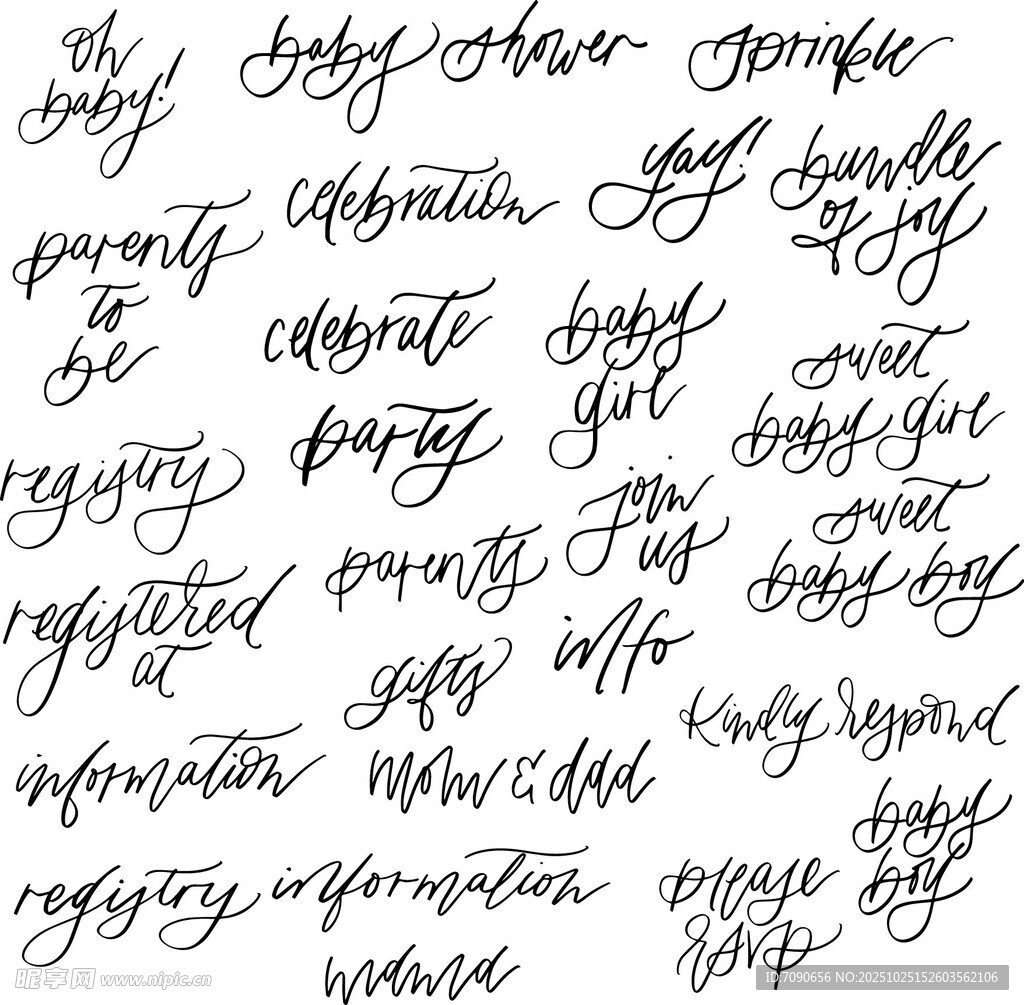 oh
baby!
baby shower
sprinkle
yay!
bundle
of joy
celebration
parents
to
be
celebrate
baby
girl
sweet
baby girl
party
registry
join
us
sweet
baby boy
parents
registered
at
info
gifts
kindly respond
information
mom & dad
baby
boy
registry information
please
rsvp
mama
昵享网 www.nipic.cn
ID:7090656 NO:20251025152603562106